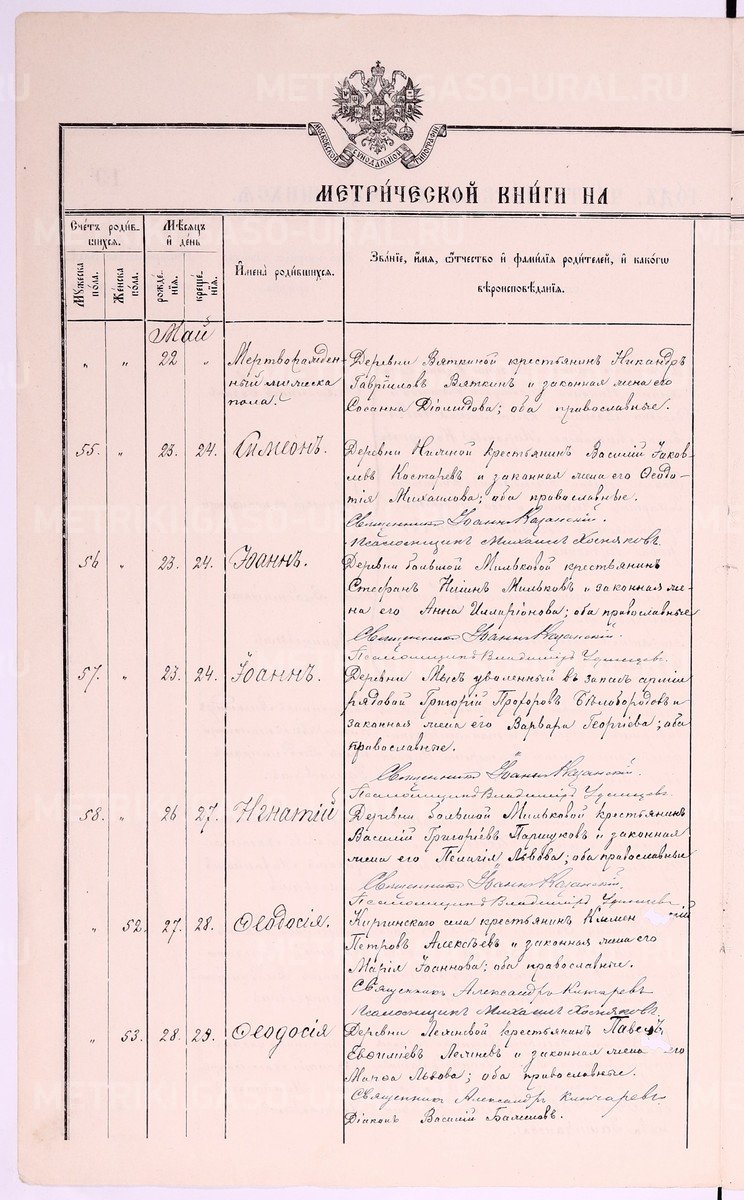 METRIKI.GASO-URAL.RU
МОСКОВСКОЙ СѴНОДАЛЬНОЙ ТИПОГРАФІИ
МЕТРИ́ЧЕСКОЙ КНИ́ГИ НА
Сче́тъ роди́в-
шихся.
Мѣ́сяцъ
и҆ де́нь
И҆мена̀ роди́вшихся.
Зва́нїе, и҆́мя, ѻ҆́тчество и҆ фами́лїя роди́телей, и҆ како́гѡ
вѣроисповѣ́данїя.
Му́жеска
по́ла.
Же́нска
по́ла.
рожде́-
нїя.
креще́-
нїя.
Май
„ „ 22 „ Мертворожден- Деревни Вяткиной крестьянинъ Никандръ
ный мужеска Гавріиловъ Вяткинъ и законная жена его
пола. Сосанна Діомидова; оба православные.
55. „ 23. 24. Симеонъ. Деревни Нижной крестьянинъ Василій Іаков-
левъ Костаревъ и законная жена его Ѳеодо-
тія Михаилова; оба православные.
Священникъ Іоаннъ Казанскій.
Псаломщикъ Михаилъ Хосняковъ
56 „ 23. 24. Іоаннъ. Деревни большой Мильковой крестьянинъ
Стефанъ Мильковъ и законная же-
на его Анна Илларіонова; оба православные
Священникъ Іоаннъ Казанскій.
Псаломщикъ Владиміръ
57. „ 23. 24. Іоаннъ. Деревни Мысъ уволенный въ запасъ арміи
рядовой Григорій Бѣлобородовъ и
законная жена его Варвара Георгіева; оба
православные.
Священникъ Іоаннъ Казанскій.
Псаломщикъ Владиміръ
58. „ 26 27. Игнатій Деревни большой Мильковой крестьянинъ
Василій Григоріевъ Паршуковъ и законная
жена его Пелагія Львова; оба православные
Священникъ Іоаннъ Казанскій.
Псаломщикъ Владиміръ
„ 52. 27. 28. Ѳеодосія. Киргинскаго села крестьянинъ
Петровъ Алексѣевъ и законная жена его
Марія Іоаннова; оба православные.
Священникъ Александръ
Псаломщикъ Михаилъ Хосняковъ
„ 53. 28. 29. Ѳеодосія Деревни крестьянинъ Павелъ
Евѳиміевъ и законная жена его
Львова; оба православные.
Священникъ Александръ
Діаконъ Василій